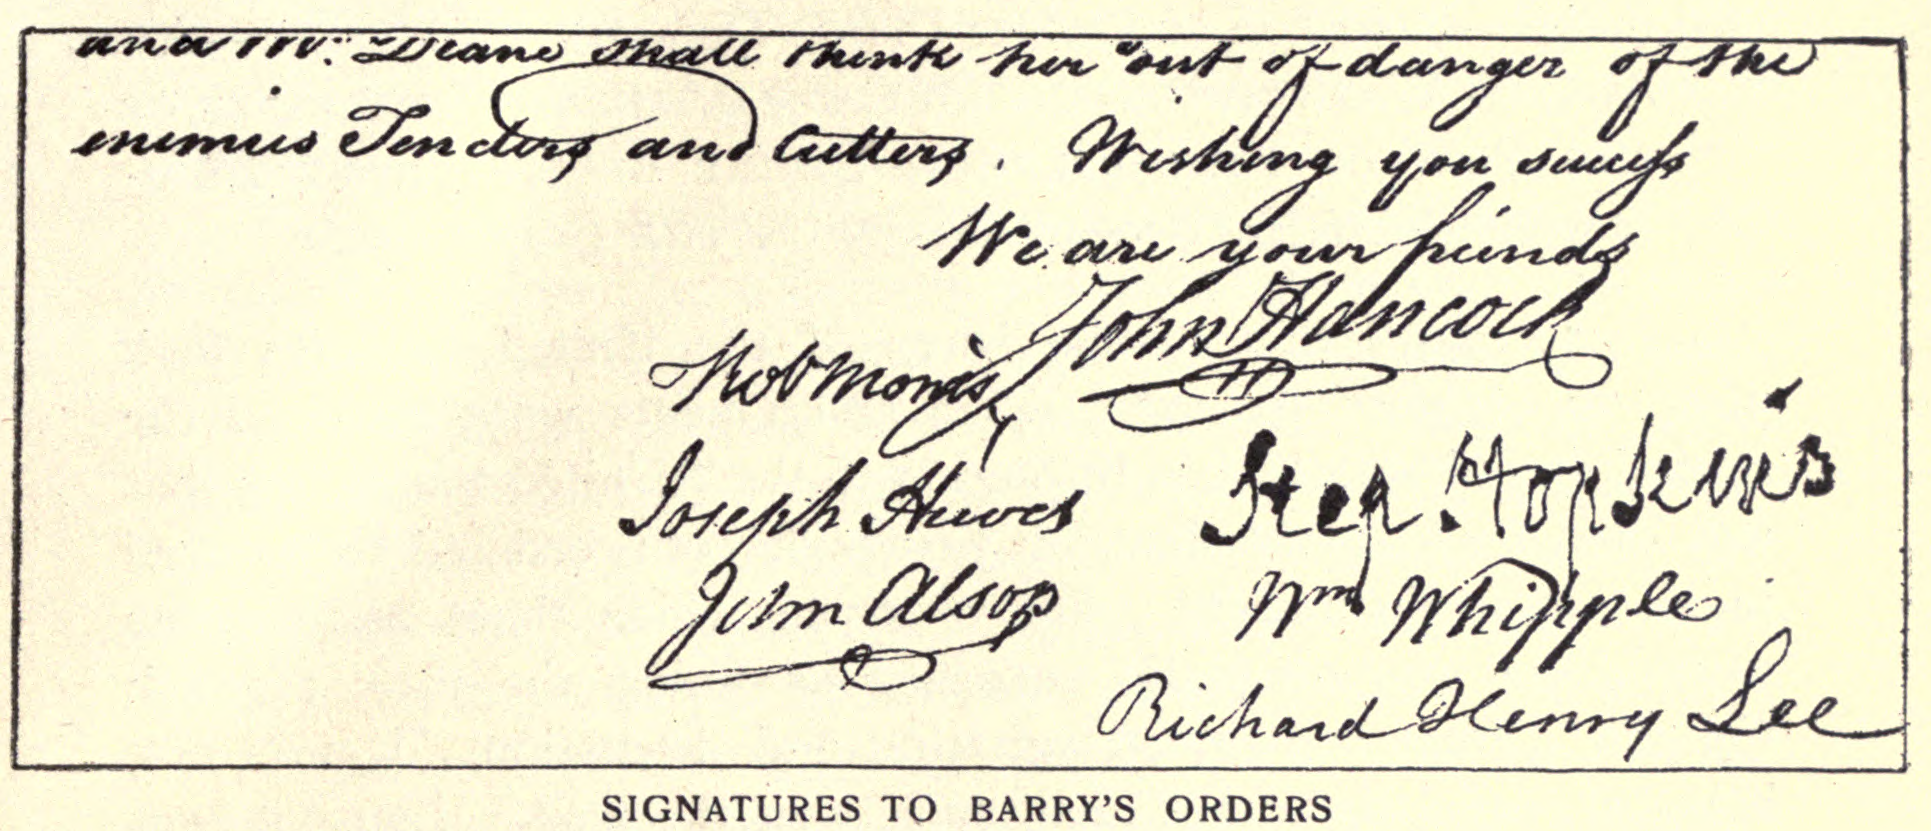 and Mr. Deane shall think her out of danger of the
enemies Tenders and Cutters. Wishing you success
We are your friends
John Hancock
Rob Morris
Joseph Hewes
Step. Hopkins
John Alsop
Wm Whipple
Richard Henry Lee
SIGNATURES TO BARRY'S ORDERS